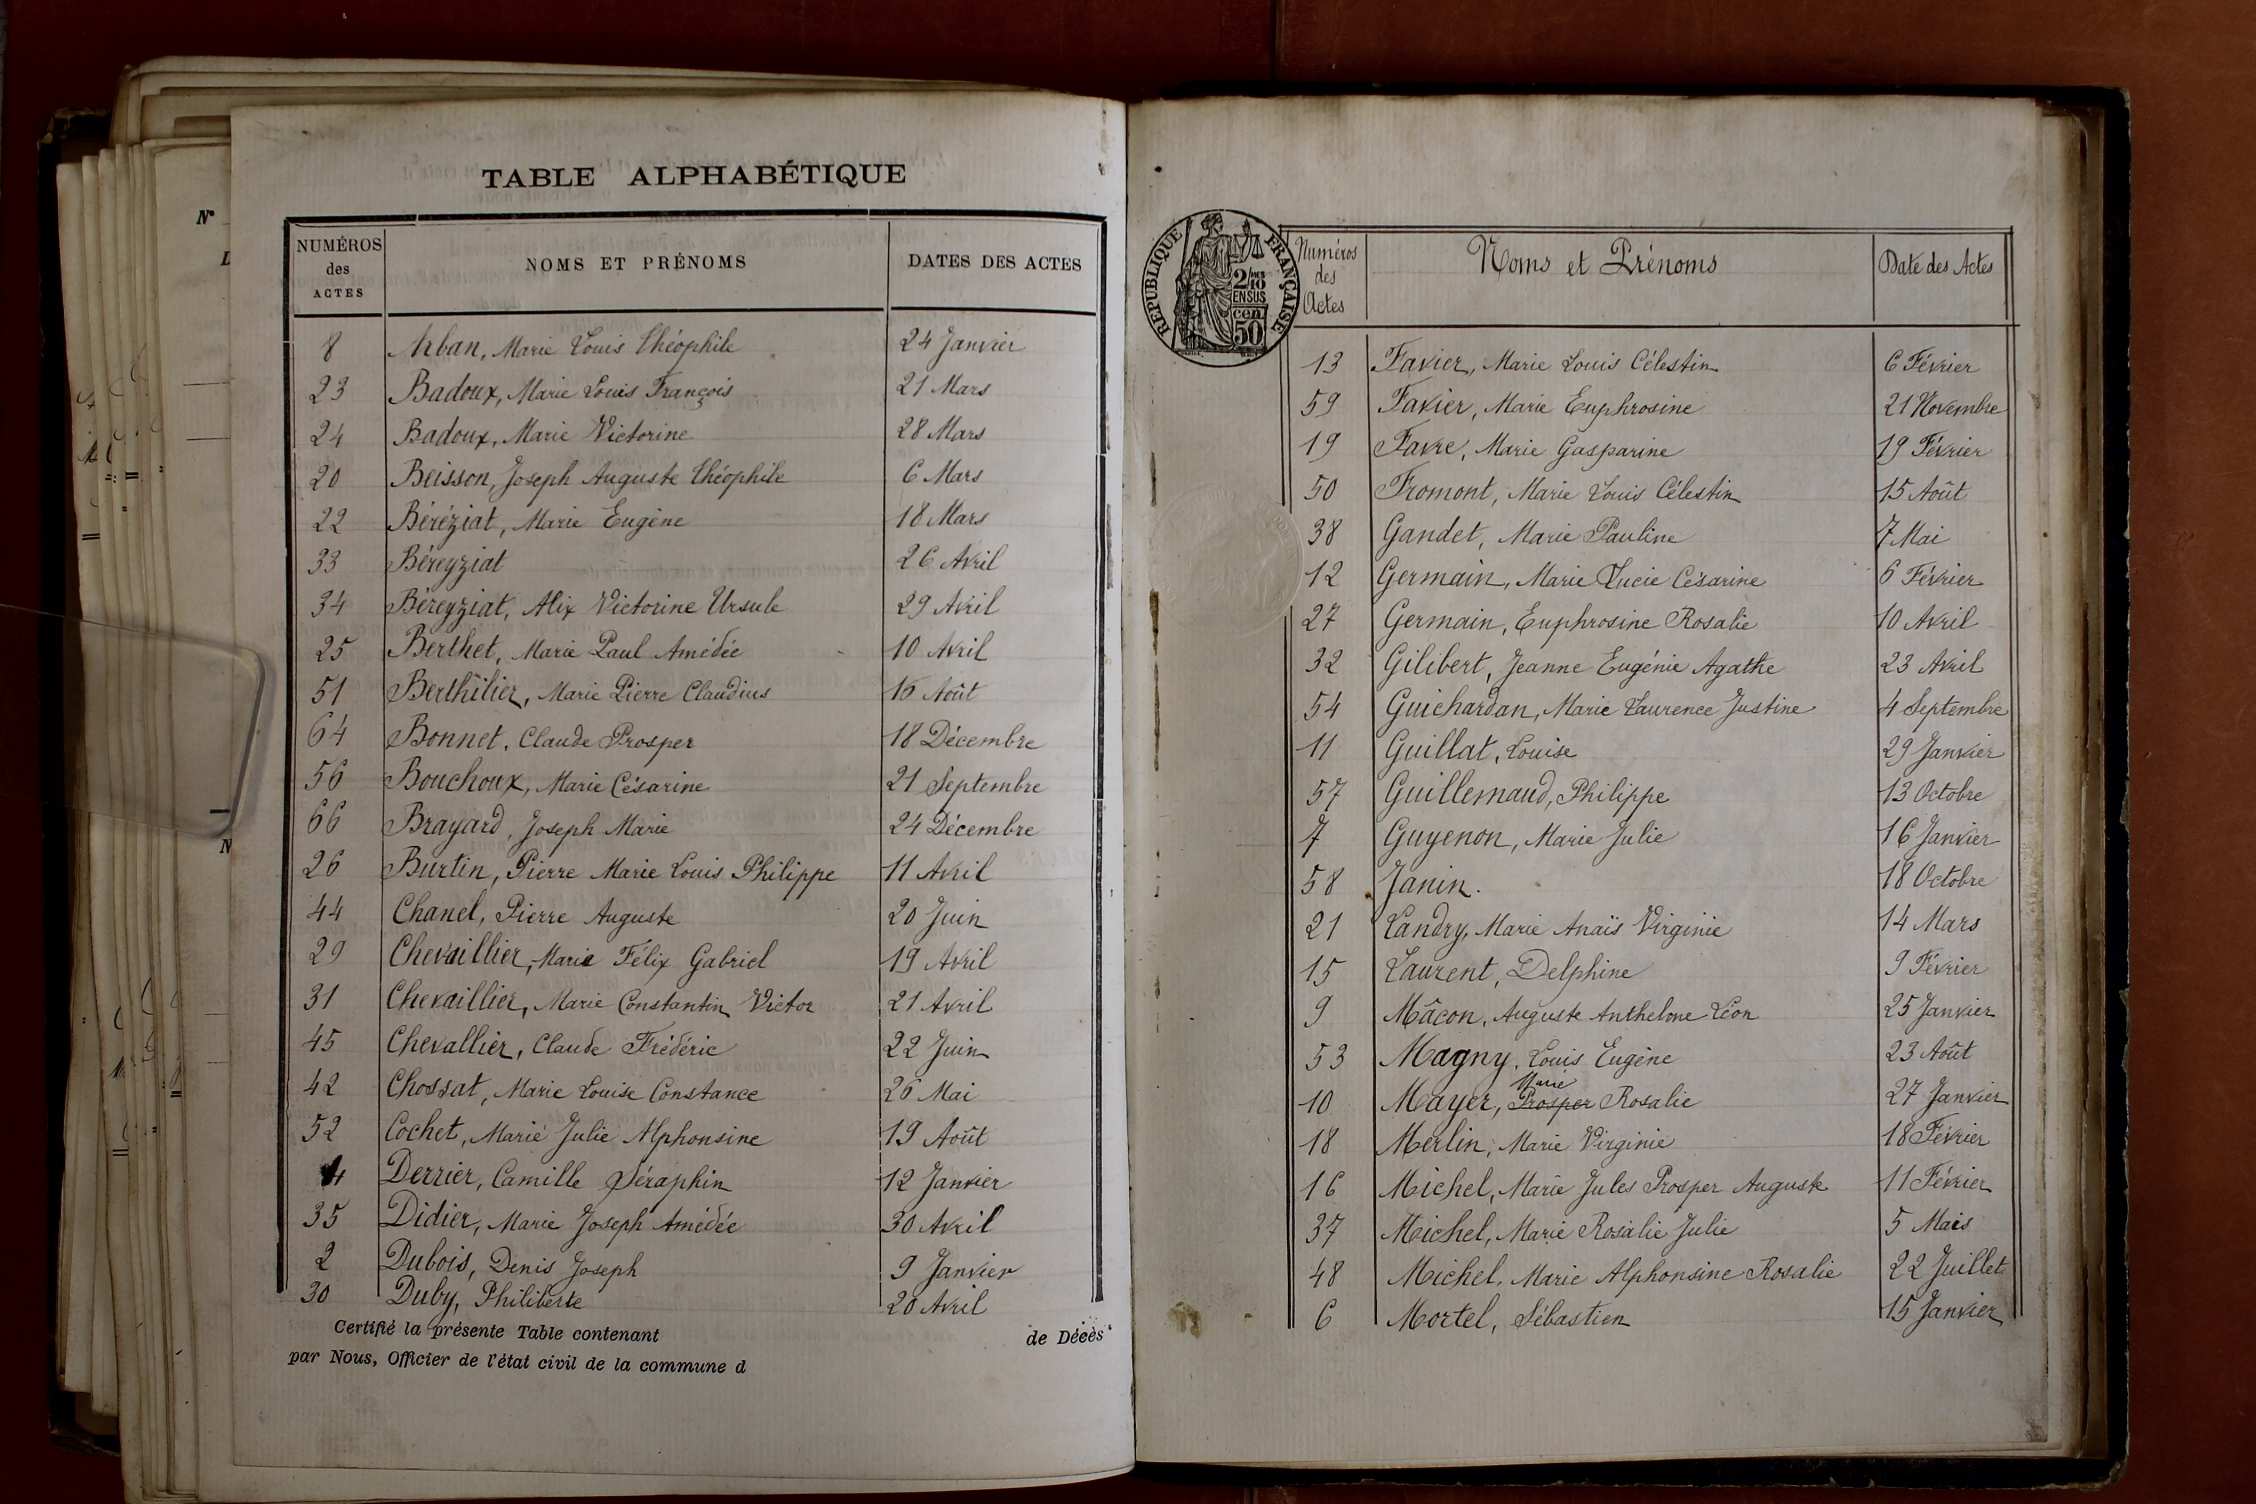 N°
L
N
TABLE ALPHABÉTIQUE
NUMÉROS des ACTES NOMS ET PRÉNOMS DATES DES ACTES
8 Arban, Marie Louis Théophile 24 Janvier
23 Badoux, Marie Louis François 21 Mars
24 Badoux, Marie Victorine 28 Mars
20 Beisson, Joseph Auguste Théophile 6 Mars
22 Béréziat, Marie Eugène 18 Mars
33 Béreyziat 26 Avril
34 Béreyziat, Alix Victorine Ursule 29 Avril
25 Berthet, Marie Paul Amédée 10 Avril
51 Berthilier, Marie Pierre Claudius 16 Août
64 Bonnet, Claude Prosper 18 Décembre
56 Bouchoux, Marie Césarine 21 Septembre
66 Brayard, Joseph Marie 24 Décembre
26 Burtin, Pierre Marie Louis Philippe 11 Avril
44 Chanel, Pierre Auguste 20 Juin
29 Chevaillier, Marie Félix Gabriel 19 Avril
31 Chevaillier, Marie Constantin Victor 21 Avril
45 Chevallier, Claude Frédéric 22 Juin
42 Chossat, Marie Louise Constance 26 Mai
52 Cochet, Marie Julie Alphonsine 19 Août
4 Derrier, Camille Séraphin 12 Janvier
35 Didier, Marie Joseph Amédée 30 Avril
2 Dubois, Denis Joseph 9 Janvier
30 Duby, Philiberte 20 Avril
Certifié la présente Table contenant de Décès
par Nous, Officier de l'état civil de la commune d
RÉPUBLIQUE FRANÇAISE
2/10 mes
EN SUS
cen
50
Numéros des Actes Noms et Prénoms Date des Actes
13 Favier, Marie Louis Célestin 6 Février
59 Favier, Marie Euphrosine 21 Novembre
19 Favre, Marie Gasparine 19 Février
50 Fromont, Marie Louis Célestin 15 Août
38 Gandet, Marie Pauline 7 Mai
12 Germain, Marie Lucie Césarine 6 Février
27 Germain, Euphrosine Rosalie 10 Avril
32 Gilibert, Jeanne Eugénie Agathe 23 Avril
54 Guichardan, Marie Laurence Justine 4 Septembre
11 Guillat, Louise 29 Janvier
57 Guillemaud, Philippe 13 Octobre
7 Guyenon, Marie Julie 16 Janvier
58 Janin. 18 Octobre
21 Landry, Marie Anaïs Virginie 14 Mars
15 Laurent, Delphine 9 Février
9 Mâcon, Auguste Anthelone Léon 25 Janvier
53 Magny, Louis Eugène 23 Août
Marie
10 Mayer, Prosper Rosalie 27 Janvier
18 Merlin, Marie Virginie 18 Février
16 Michel, Marie Jules Prosper Auguste 11 Février
37 Michel, Marie Rosalie Julie 5 Mais
48 Michel, Marie Alphonsine Rosalie 22 Juillet
6 Mortel, Sébastien 15 Janvier